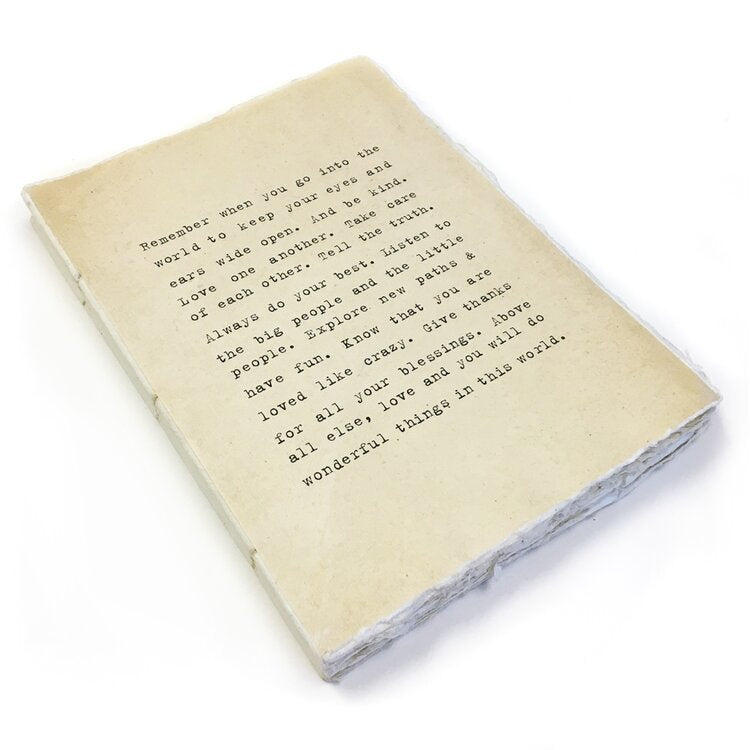 Remember when you go into the
world to keep your eyes and
ears wide open. And be kind.
Love one another. Take care
of each other. Tell the truth.
Always do your best. Listen to
the big people and the little
people. Explore new paths &
have fun. Know that you are
loved like crazy. Give thanks
for all your blessings. Above
all else, love and you will do
wonderful things in this world.